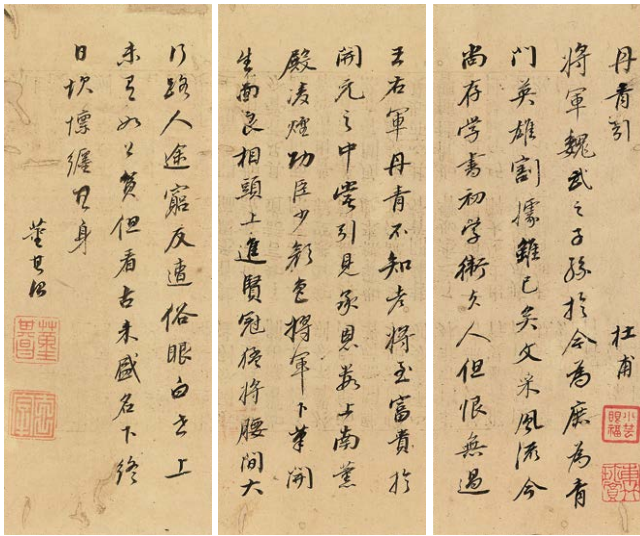 丹青引 杜甫
將軍魏武之子孫於今為庶為青
門英雄割據雖已矣文采風流今
尚存學書初學衛夫人但恨無過
王右軍丹青不知老將至富貴於
開元之中嘗引見承恩數上南薰
殿凌煙功臣少顏色將軍下筆開
生面良相頭上進賢冠猛將腰間大
行路人途窮反遭俗眼白世上
未有如公貧但看古來盛名下終
日坎懍纏其身
董其昌
董其昌
小芸眼福